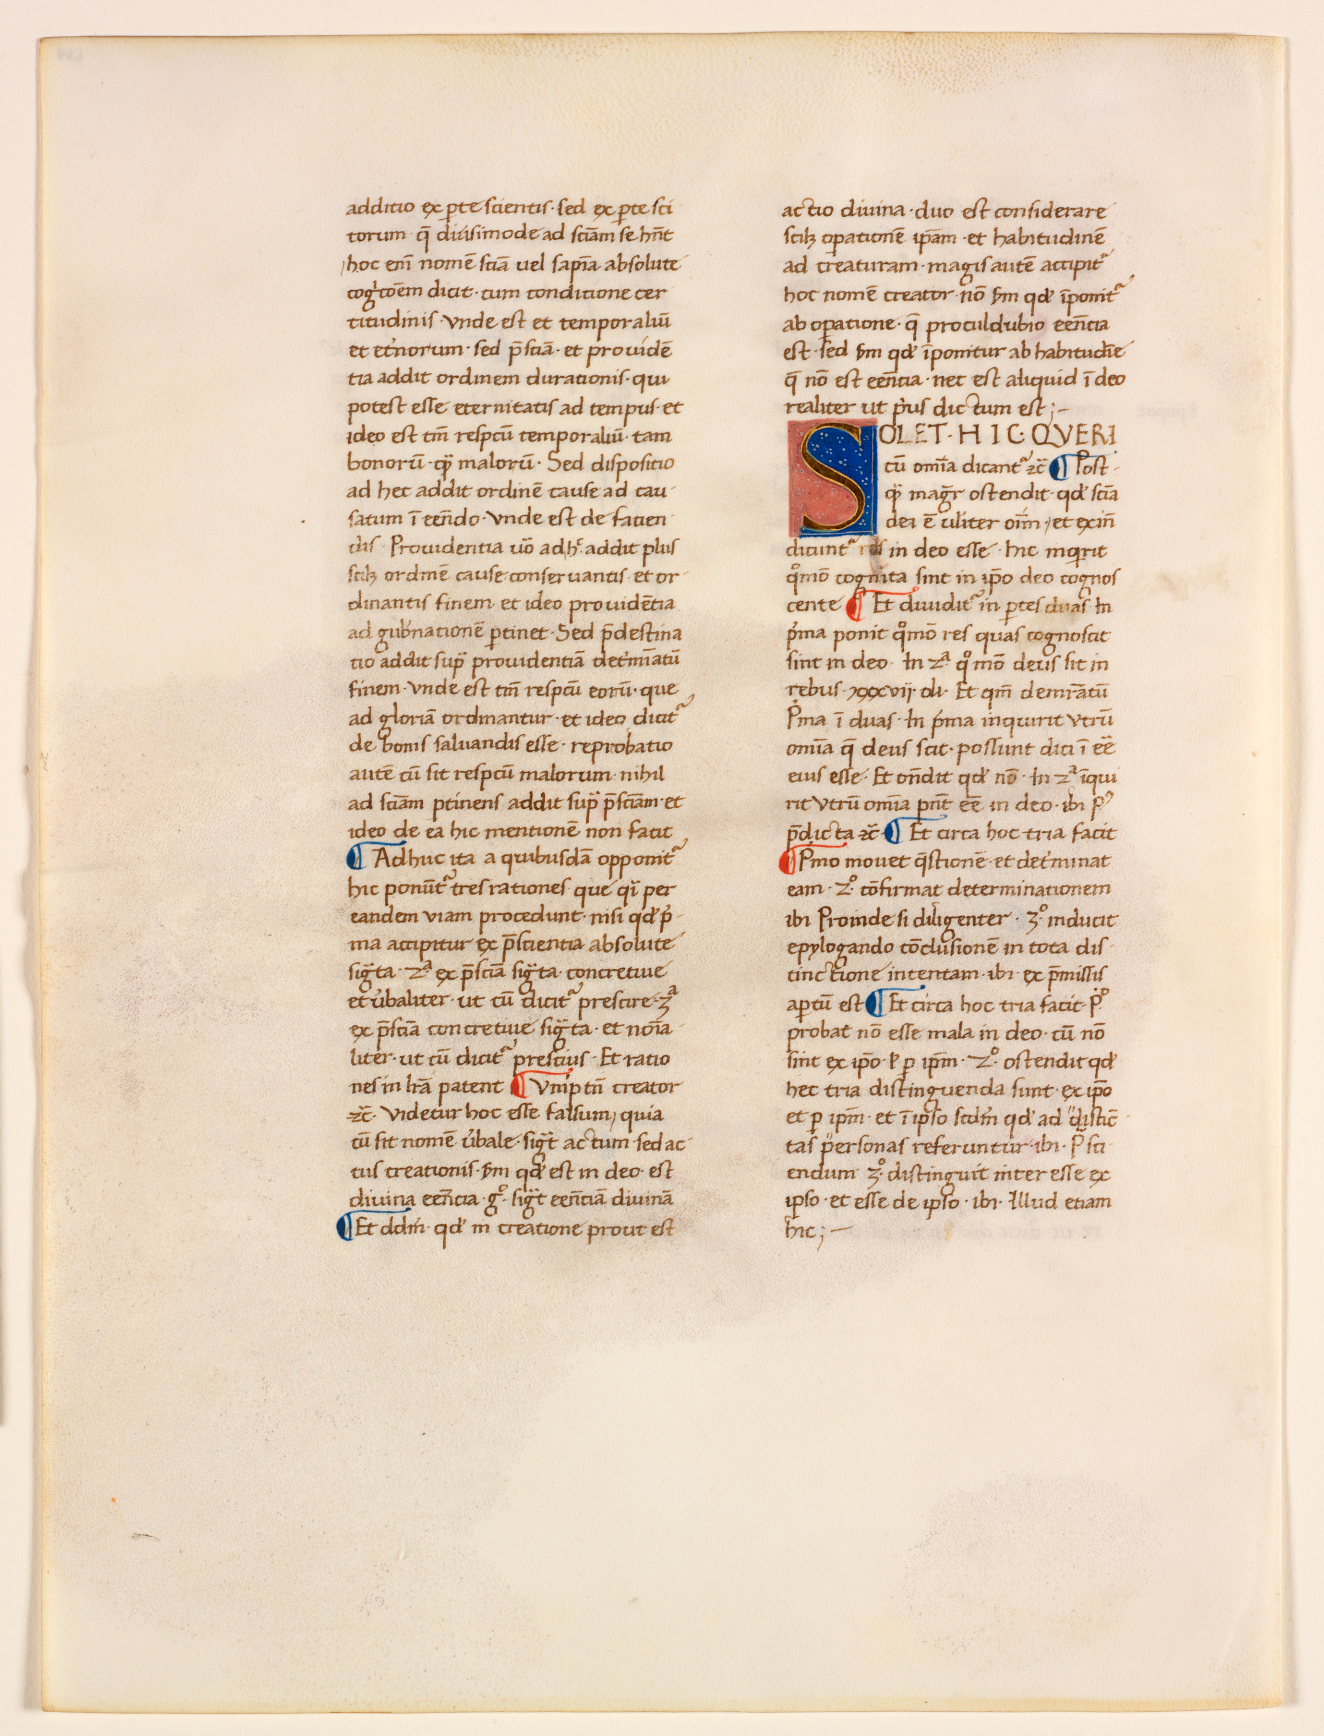 additio ex ꝑte scientis · sed ex ꝑte sci
torum · q̄ diu̾simode ad sciā̄m se hn̄t
hoc em̄ nomē sciā uel sapīa absolute
cog̾tōem dicit · cum conditione cer
titudinis · Vnde est et temporaliū
et et̾norum · sed p̄sciā · et prouidē
tia addit ordinem durationis · qui
potest esse eternitatis ad tempus · et
ideo est tm̄ respcū temporaliū · tam
bonorū · qᷓ malorū · Sed dispositio
ad hec addit ordinē cause ad cau
satum ī eēndo · Vnde est de facien
dis · Prouidentia uō ad h͛ · addit plus
scilꝫ ordinē cause conseruantis · et or
dinantis finem · et ideo prouidētia
ad gub̾nationē ꝑtinet · Sed p̄destina
tio addit supᷓ prouidentiā det̾mīatū
finem · Vnde est tm̄ respcū eorū · que
ad gloriā ordinantur · et ideo dicitᷓ
de bonis saluandis esse · reprobatio
autē cū sit respcū malorum · nihil
ad sciām ptinens addit supᷓ p̄sciām · et
ideo de ea hic mentionē non facit
¶ Adhuc ita a quibusdā opponitᷓ
hic ponūtᷓ tres rationes · que qᷓi per
eandem viam procedunt · nisi qđ p̾
ma accipitur ex p̄scientia absolute
sigᷓta · 2ᵃ ex p̄sciā sigᷓta · concretiue
et ūbaliter · ut cū dicitᷓ prescire · 3ᵃ
ex p̄sciā concretiue sigᷓta · et noīa
liter · ut cū dicitᷓ prescius · Et ratio
nes in lrā patent ¶ Vnip tn̄ creator
⁊c̄ · Videtur hoc esse falsum, quia
cū sit nomē u̾bale · sigᷓt actum · sed ac
tus creationis · ẜm qđ est in deo · est
diuina eēncia · gᵒ · sigᷓt eēnciā diuinā
¶ Et ddm̄ · qđ in creatione prout est
actio diuina · duo est considerare
scilꝫ oꝑationē ip̄am · et habitudinē
ad creaturam · magis autē accipitᷓ
hoc nomē creator · nō ẜm qđ īponitᷓ
ab oꝑatione · q̄ proculdubio eēncia
est · sed ẜm qđ īponitur ab habitudīe
q̄ nō est eēntia · nec est aliquid ī deo
realiter ut p̾us dictum est ; –
SOLET · HIC · QVERI
cū omīa dicantᷓ ⁊c̄ ¶ Post
qᷓ magr̄ ostendit · qđ scīa
dei ē ul̾iter oīm , et exin̄
dicuntᷓ res in deo esse · hic inq̾rit
qᵒmō cognita sint in ip̄o deo cognos
cente ¶ Et diuiditᷓ in ꝑtes duas · In
p̾ma ponit qᵒmō res quas cognoscit
sint in deo · In 2ᵃ qᵒmō deus sit in
rebus · xxxvij · di · Et qm̄ demrātū
P̾ma ī duas · In p̾ma inquirit vtrū
omīa q̄ deus scit · possunt dici ī eē
eius esse · Et on̄dit qđ nō · In 2ᵃ īqui
rit vtrū omīa pn̄t eē in deo · ibi Pᵒ
p̄dicta ⁊c̄ · ¶ Et circa hoc tria facit
¶ P̾mo mouet q̄stionē · et det̾minat
eam · 2ᵒ · cōfirmat determinationem
ibi Proinde si diligenter · 3ᵒ inducit
epylogando cōclusionē in tota dis
tinctione intentam · ibi · ex p̄missis
aꝑtū est ¶ Et circa hoc tria facit · Pᵒ
probat nō esse mala in deo · cū nō
sint ex ip̄o · ł ꝑ ip̄m · 2ᵒ · ostendit qđ
hec tria distinguenda sunt · ex ip̄o
et ꝑ ip̄m · et ī ip̄so scdm̄ qđ ad distīc
tas personas referuntur · ibi · P̾ sci
endum 3ᵒ · distinguit inter esse ex
ipso · et esse de ipso · ibi · Illud etiam
hic ; –